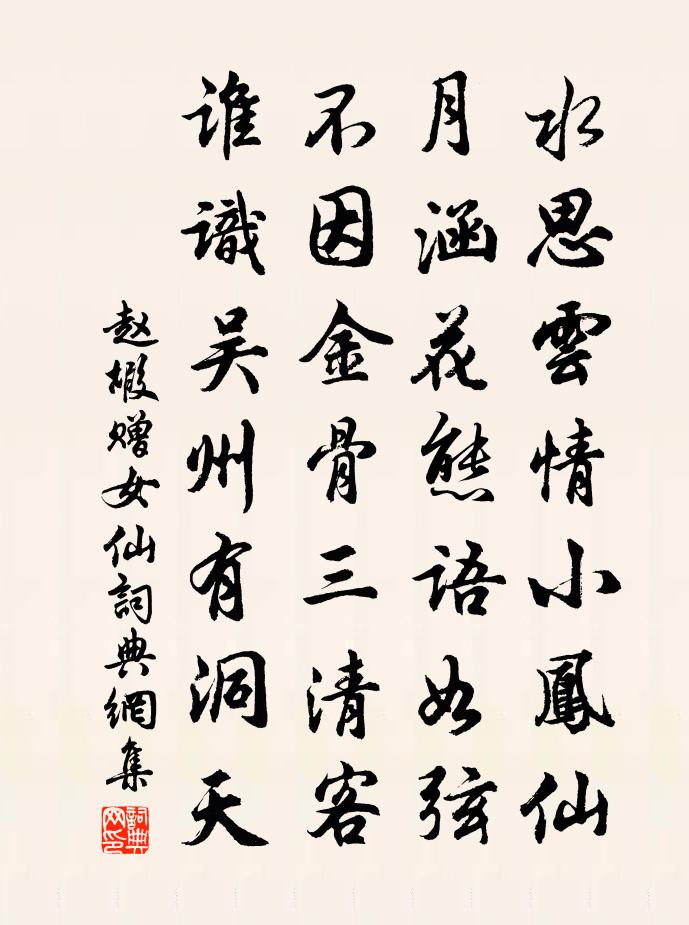 水思雲情小鳳仙
月涵花態語如弦
不因金骨三清客
誰識吴州有洞天
赵嘏贈女仙詞典網集
詞典網印